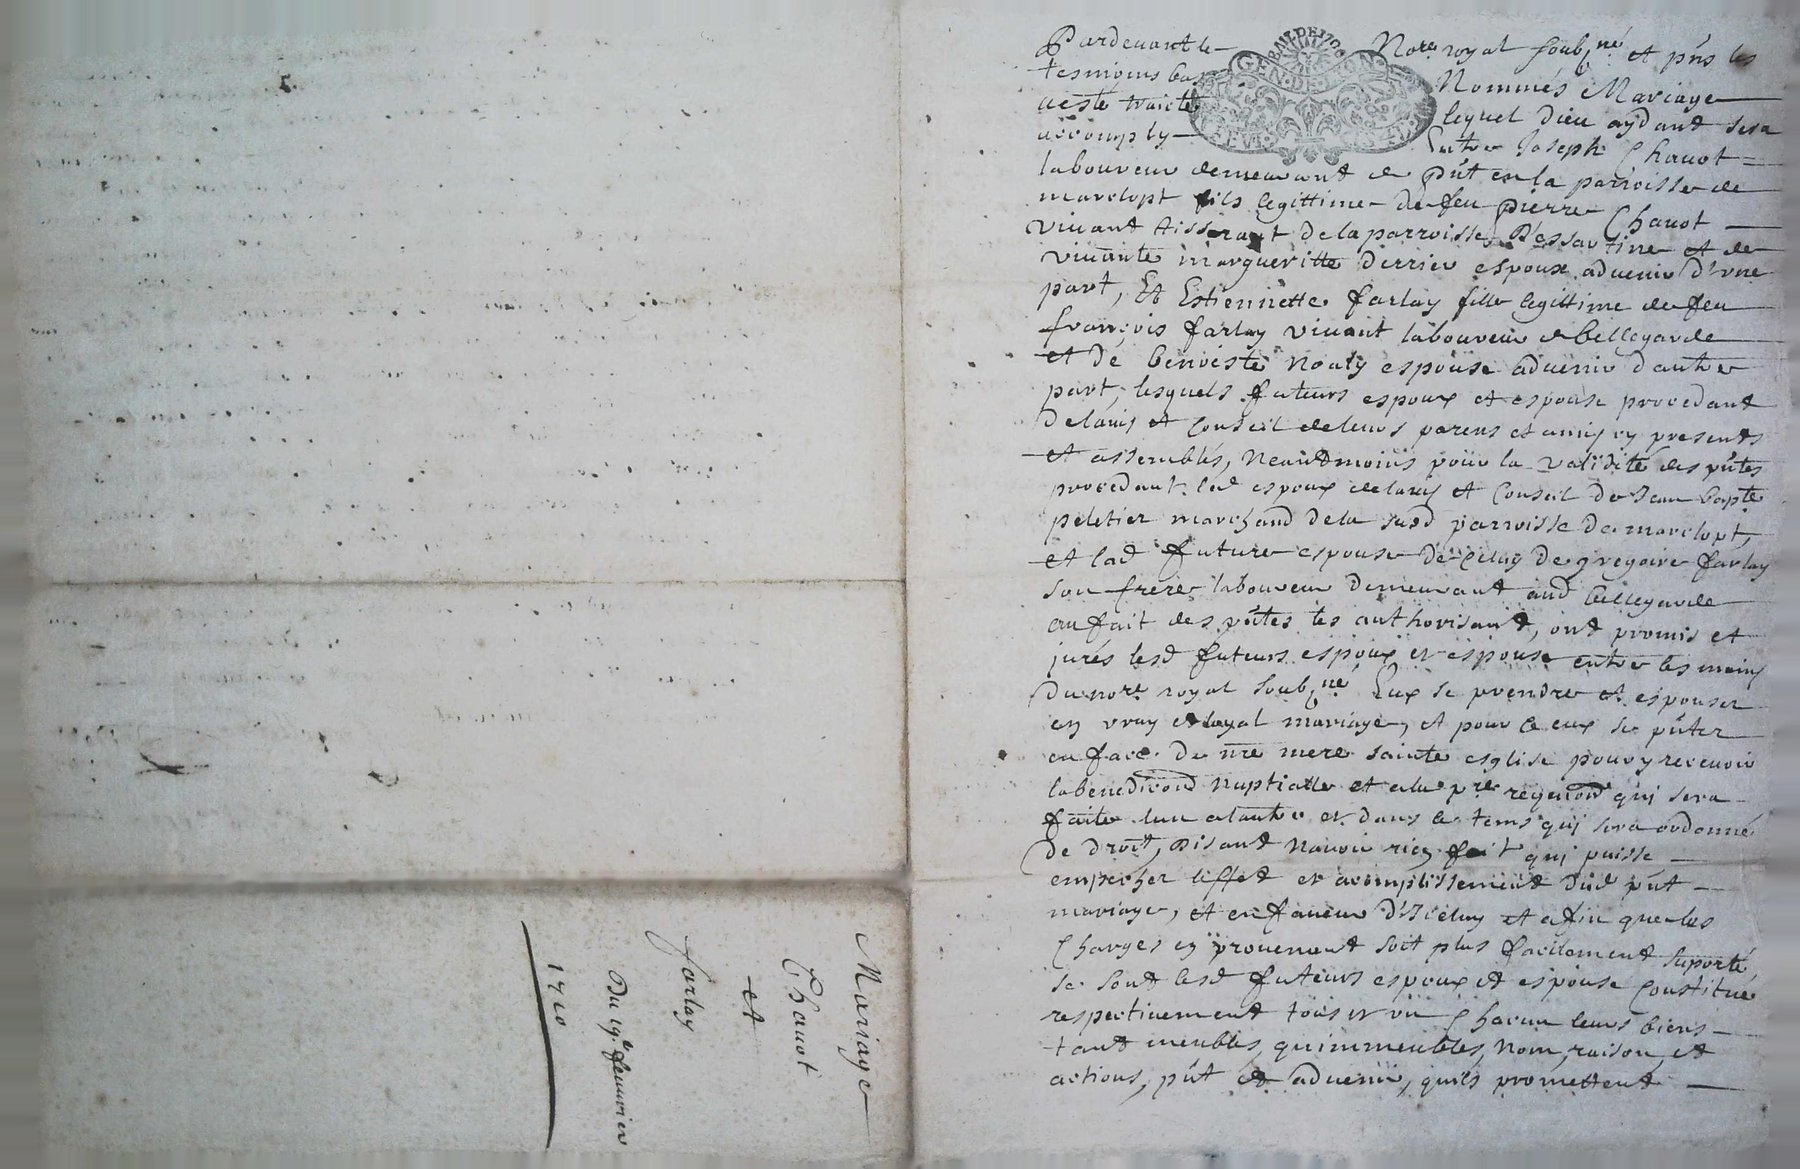 Pardeuant le Nore royal soubsné et pn̄s les
tesmoins bas Nommés Mariage
a esté traicté lequel Dieu aydant sera
accomply Entre Joseph Chauot
laboureur demeurant de pn̄t en la parroisse de
marclopt fils legittime de feu pierre Chauot
viuant tisserant de la parroisse Dessartine et de
viuante margueritte Derrier espoux aduenir d'vne
part, Et Estiennette farlay fille legittime de feu
françois farlay viuant laboureur de bellegarde
et de benoiste Noaly espouse aduenir d'autre
part, lesquels futeurs espoux et espouse procedant
de lauis et Conseil de leurs parens et amis cy presents
et assemblés, neantmoins pour la validité des pn̄tes
procedant led espoux de lauis et Conseil de Jean bapte
peletier marchand de la susd parroisse de marclopt,
et lad future espouse de Celuy de gregoire farlay
son frere laboureur demeurant aud bellegarde
au fait des pn̄tes les authorisant, ont promis et
jurés lesd futeurs espoux et espouse entre les mains
Du nore royal soubsné Eux se prendre et espouser
en vray et loyal mariage, et pour ce eux se pn̄ter
en face de nr̄e mere sainte esglise pour y receuoir
la benediction nuptialle et a la pre requion qui sera
faite lun a lautre et dans le tems qui sera ordonné
de droit, Disant nauoir rien fait qui puisse
empecher leffet et acomplissement dud pn̄t
mariage, et en faueur d'Iceluy et afin que les
Charges en prouenant soit plus facilement suporté,
se sont lesd futeurs espoux et espouse Constitué
respectiuement tous et vn Chacun leurs biens
tant meubles, quimmeubles, nom, raison, et
actions, pn̄t et aduenir, quils promettent
GEN. DE LYON
Mariage
Chauot
et
farlay
Du 19e feurier
1710